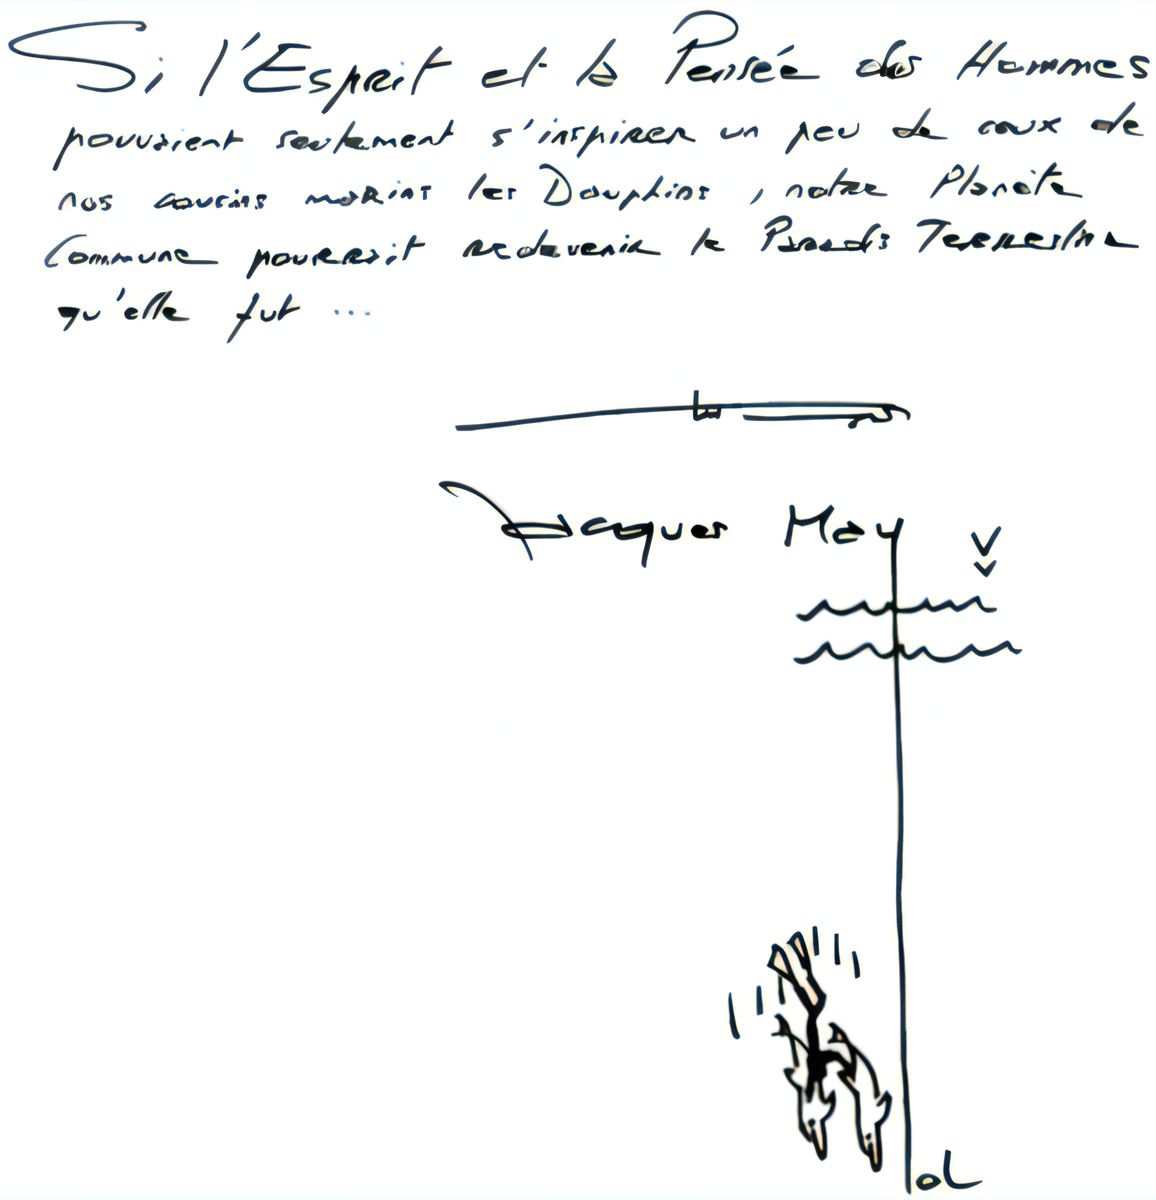 Si l'Esprit et la Pensée des Hommes
pouvaient seulement s'inspirer un peu de ceux de
nos cousins marins les Dauphins, notre Planète
Commune pourrait redevenir le Paradis Terrestre
qu'elle fut ...
Jacques May
oL